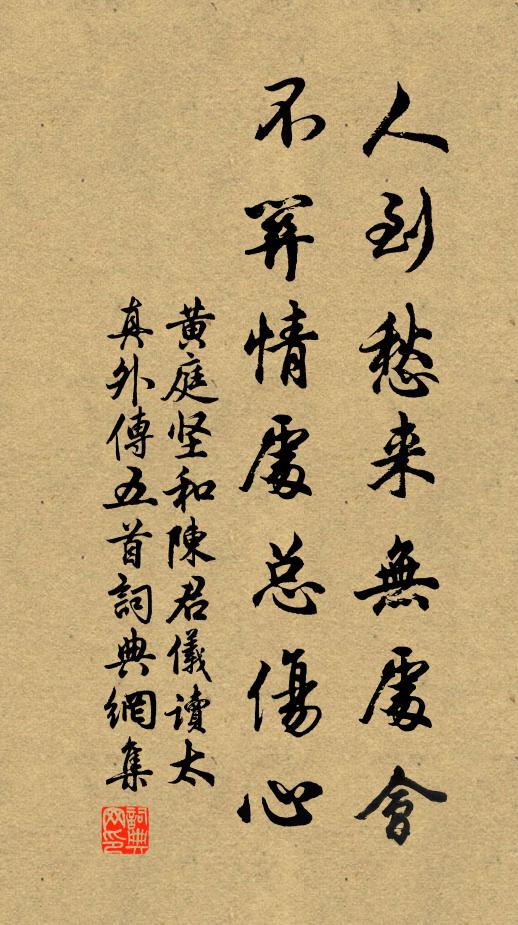 人到愁来無處會
不關情處总傷心
黄庭坚和陳君儀读太
真外傳五首詞典網集
詞典網印